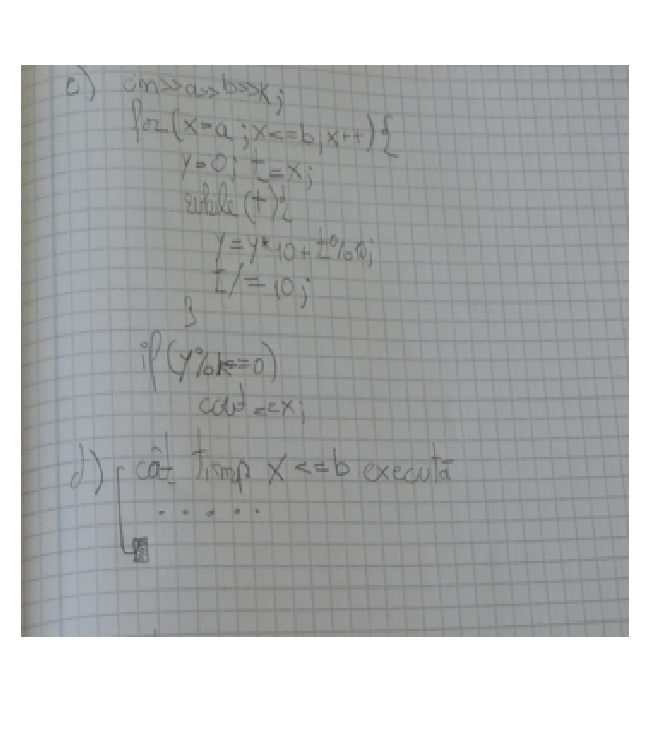 c) cin>>a>>b>>k;
for(x=a;x<=b,x++){
y=0; t=x;
while(t){
y=y*10+t%10;
t/=10;
}
if(y%k==0)
cout<<x;
d) cât timp x<=b execută
.....